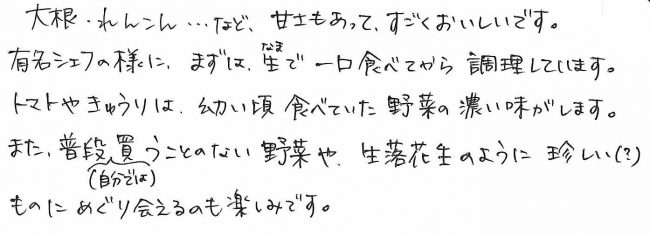 大根・れんこん…など、甘士もあって、すごくおいしいです。
有名シェフの様に、まずは、生(なま)で一口食べてから調理しています。
トマトやきゅうりは、幼い頃食べていた野菜の濃い味がします。
また、普段買うことのない野菜や、生落花生のように珍しい(?)
(自分では)
ものにめぐり会えるのも楽しみです。